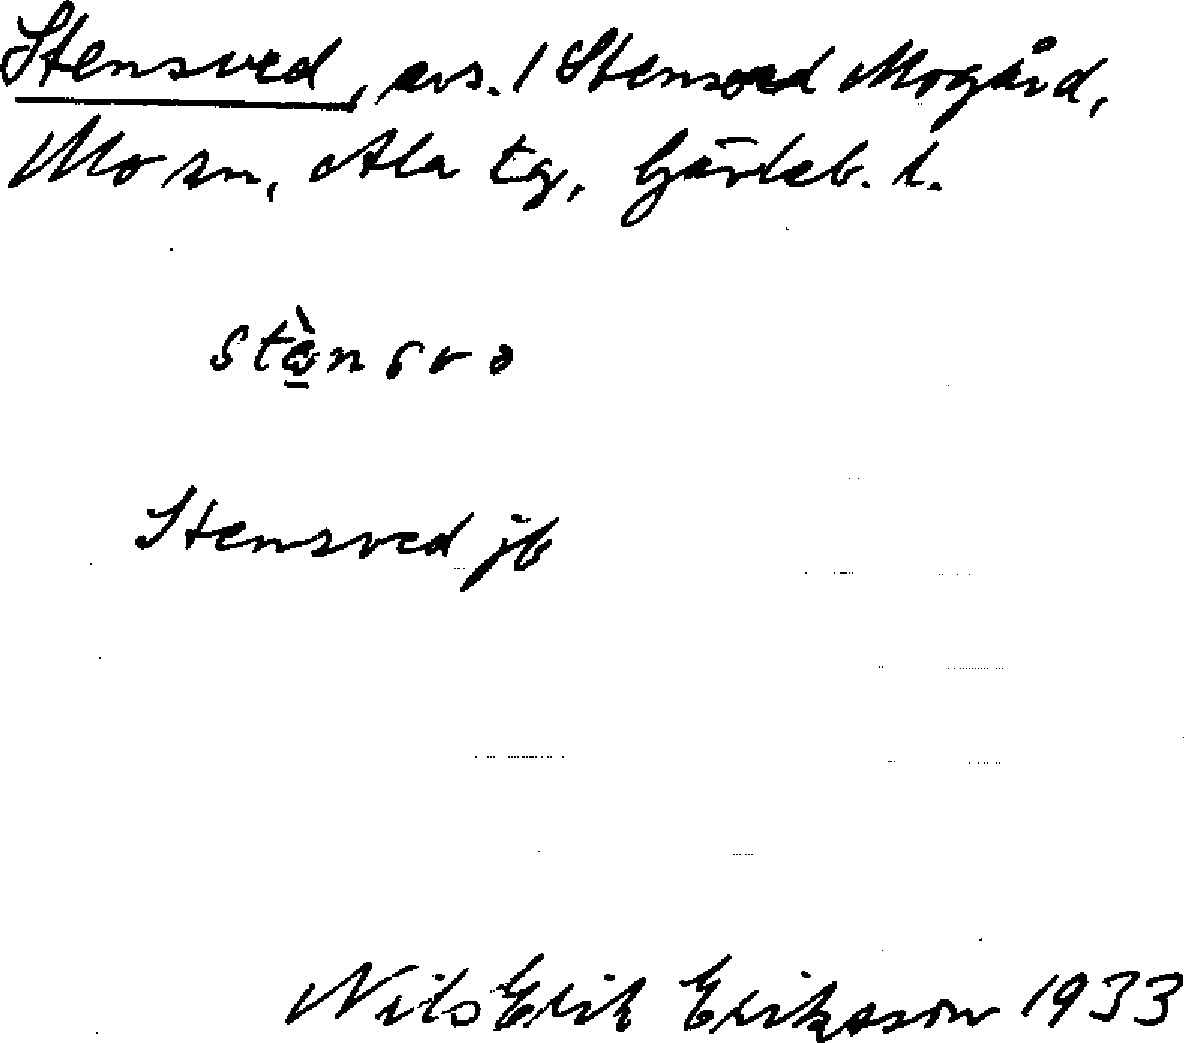 Stensved, avs. / Stensved Mogård,
Mo sn, Ala tg, Gävleb. l.
Stensved jb
Nils Erik Eriksson 1933